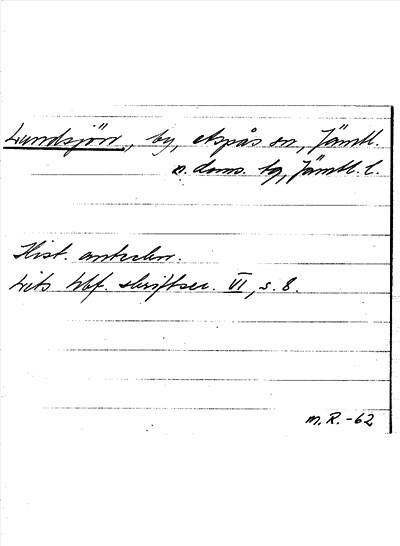 Lundsjön, by, Aspås sn, Jämtl.
n. doms. tg, Jämtl. l.
Hist. anteckn.
Lits hbf. skriftser. VI, s. 8.
M. R. -62